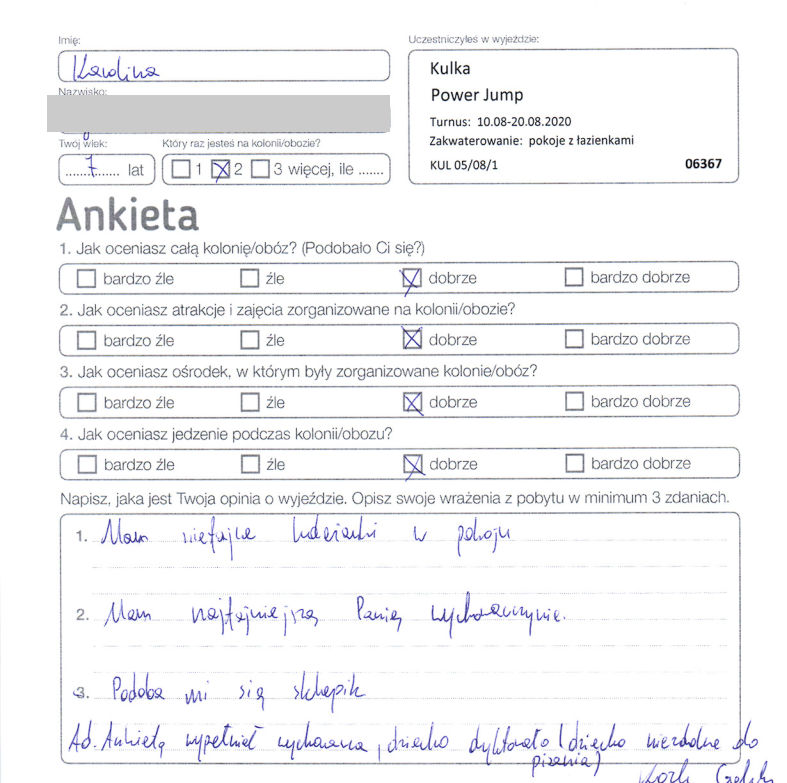 Imię:
Karolina
Nazwisko:
Twój wiek:
7 lat
Który raz jesteś na kolonii/obozie?
1 2 3 więcej, ile .......
Uczestniczyłeś w wyjeździe:
Kulka
Power Jump
Turnus: 10.08-20.08.2020
Zakwaterowanie: pokoje z łazienkami
KUL 05/08/1 06367
Ankieta
1. Jak oceniasz całą kolonię/obóz? (Podobało Ci się?)
bardzo źle źle dobrze bardzo dobrze
2. Jak oceniasz atrakcje i zajęcia zorganizowane na kolonii/obozie?
bardzo źle źle dobrze bardzo dobrze
3. Jak oceniasz ośrodek, w którym były zorganizowane kolonie/obóz?
bardzo źle źle dobrze bardzo dobrze
4. Jak oceniasz jedzenie podczas kolonii/obozu?
bardzo źle źle dobrze bardzo dobrze
Napisz, jaka jest Twoja opinia o wyjeździe. Opisz swoje wrażenia z pobytu w minimum 3 zdaniach.
1. Mam niefajne koleżanki w pokoju
2. Mam najfajniejszą Panią wychowawczynie.
3. Podoba mi się sklepik
Ad. Ankietę wypełniał wychowawca, dziecko dyktowało (dziecko niezdolne do
pisania)